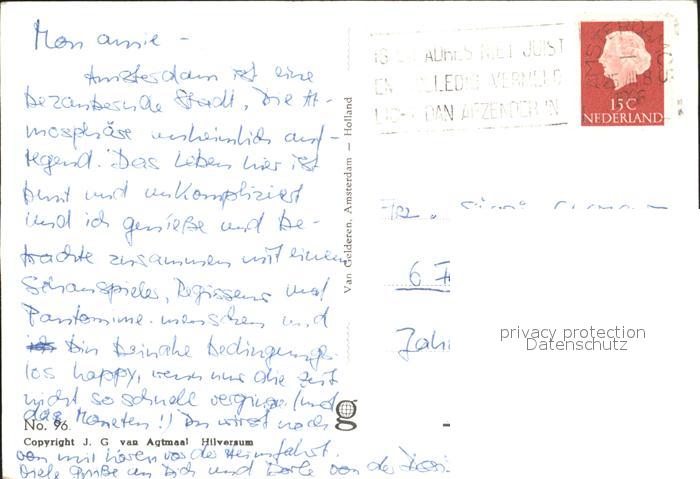 Mon amie -
Amsterdam ist eine
bezaubernde Stadt, die At-
mosphäre unheimlich auf-
regend. Das Leben hier ist
bunt und unkompliziert
und ich genieße und be-
trachte zusammen mit einem
Schauspieler, Regisseur und
Pantomime. menschen und
bin beinahe bedingungs-
los happy, wenn nur die Zeit
nicht so schnell verginge (und
das Moneten!) Du wirst noch
von mir hören vor der Heimfahrt.
Viele Grüße an Dich und von der
No. 96
Copyright J. G van Agtmaal Hilversum
Van Gelderen, Amsterdam — Holland
IS UW ADRES NIET JUIST
EN VOLLEDIG VERMELD
LICHT DAN AFZENDER IN
AMSTERDAM
15 C
NEDERLAND
6
privacy protection
Datenschutz